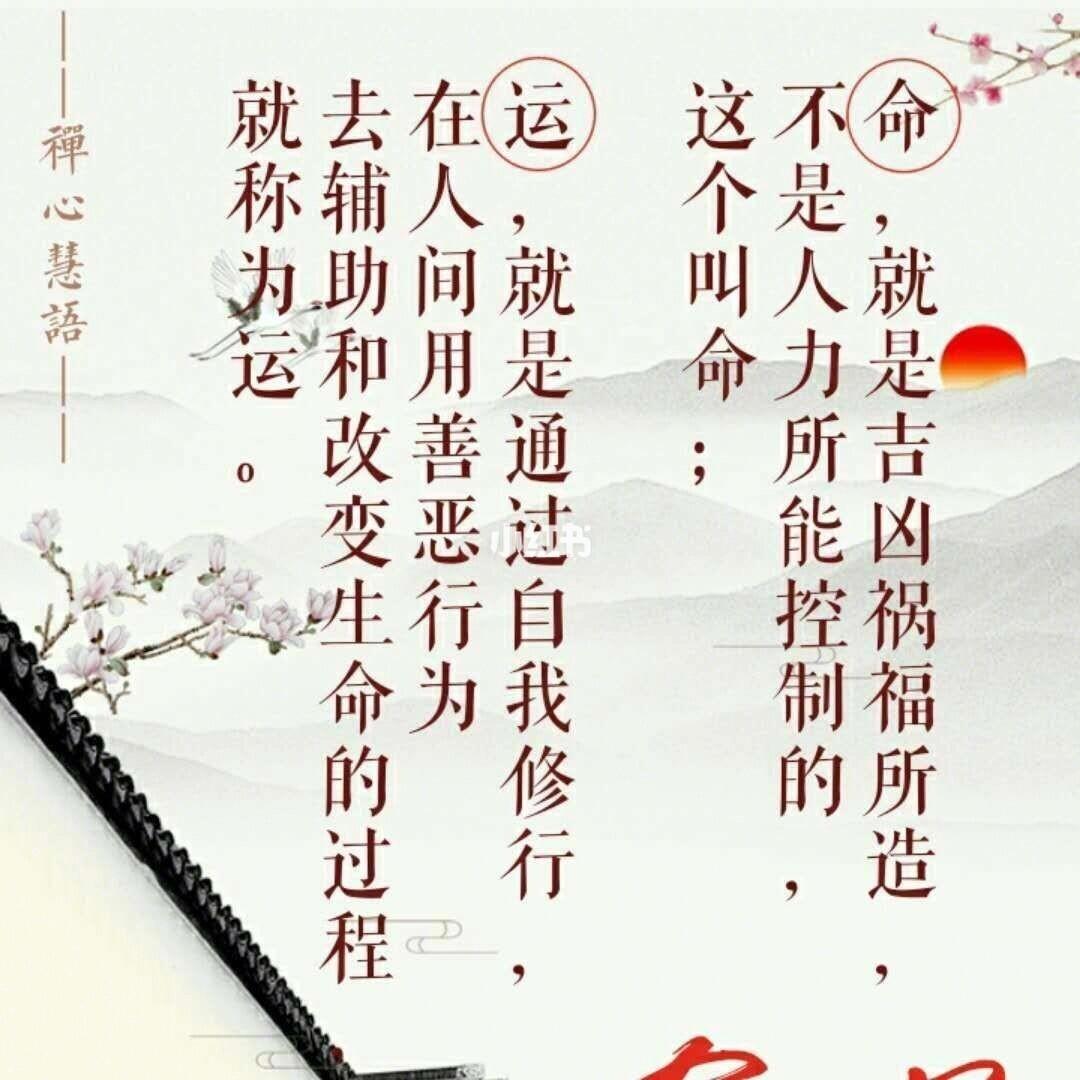 命，就是吉凶祸福所造，
不是人力所能控制的，
这个叫命；
运，就是通过自我修行，
在人间用善恶行为
去辅助和改变生命的过程
就称为运。
禪心慧語
小红书